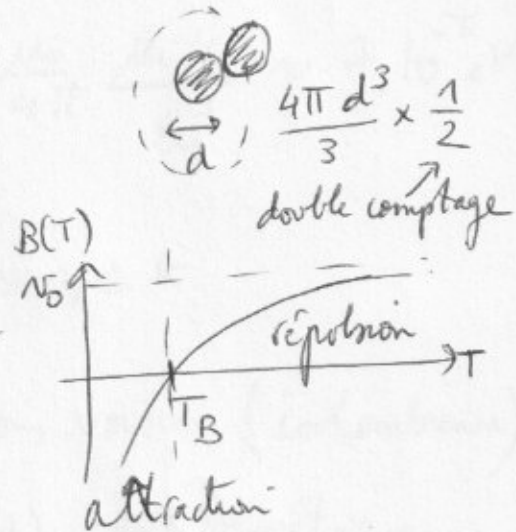 d
4π d³ / 3 × 1/2
double comptage
B(T)
v₀
répulsion
T
T_B
attraction